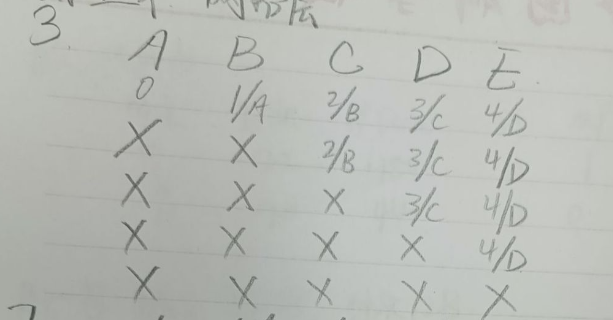 3.
A B C D E
0 1/A 2/B 3/C 4/D
X X 2/B 3/C 4/D
X X X 3/C 4/D
X X X X 4/D
X X X X X